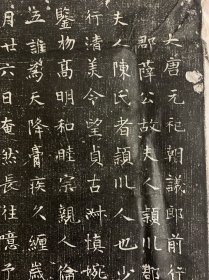 大唐元和朝議郎前行
郡薛公故夫人潁川郡
夫人陳氏者潁川人也少
行清美令望貞古淑慎婉
鑒物高明和睦宗親人倫
並誰為天降膏疾久纏歲
月廿六日奄然長往噫予